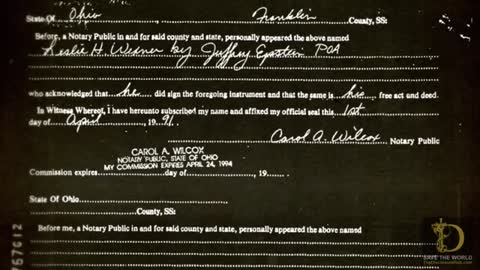 State Of Ohio Franklin County, SS:
Before, a Notary Public in and for said county and state, personally appeared the above named
Leslie H. Wexner by Jeffrey Epstein POA
who acknowledged that he did sign the foregoing instrument and that the same is his free act and deed.
In Witness Whereof, I have hereunto subscribed my name and affixed my official seal this 1st
day of April 19 91.
Carol A. Wilcox Notary Public
CAROL A. WILCOX
NOTARY PUBLIC, STATE OF OHIO
MY COMMISSION EXPIRES APRIL 24, 1994
Commission expires day of 19
State Of Ohio
County, SS:
Before me, a Notary Public in and for said county and state, personally appeared the above named
57G12
THE WORLD